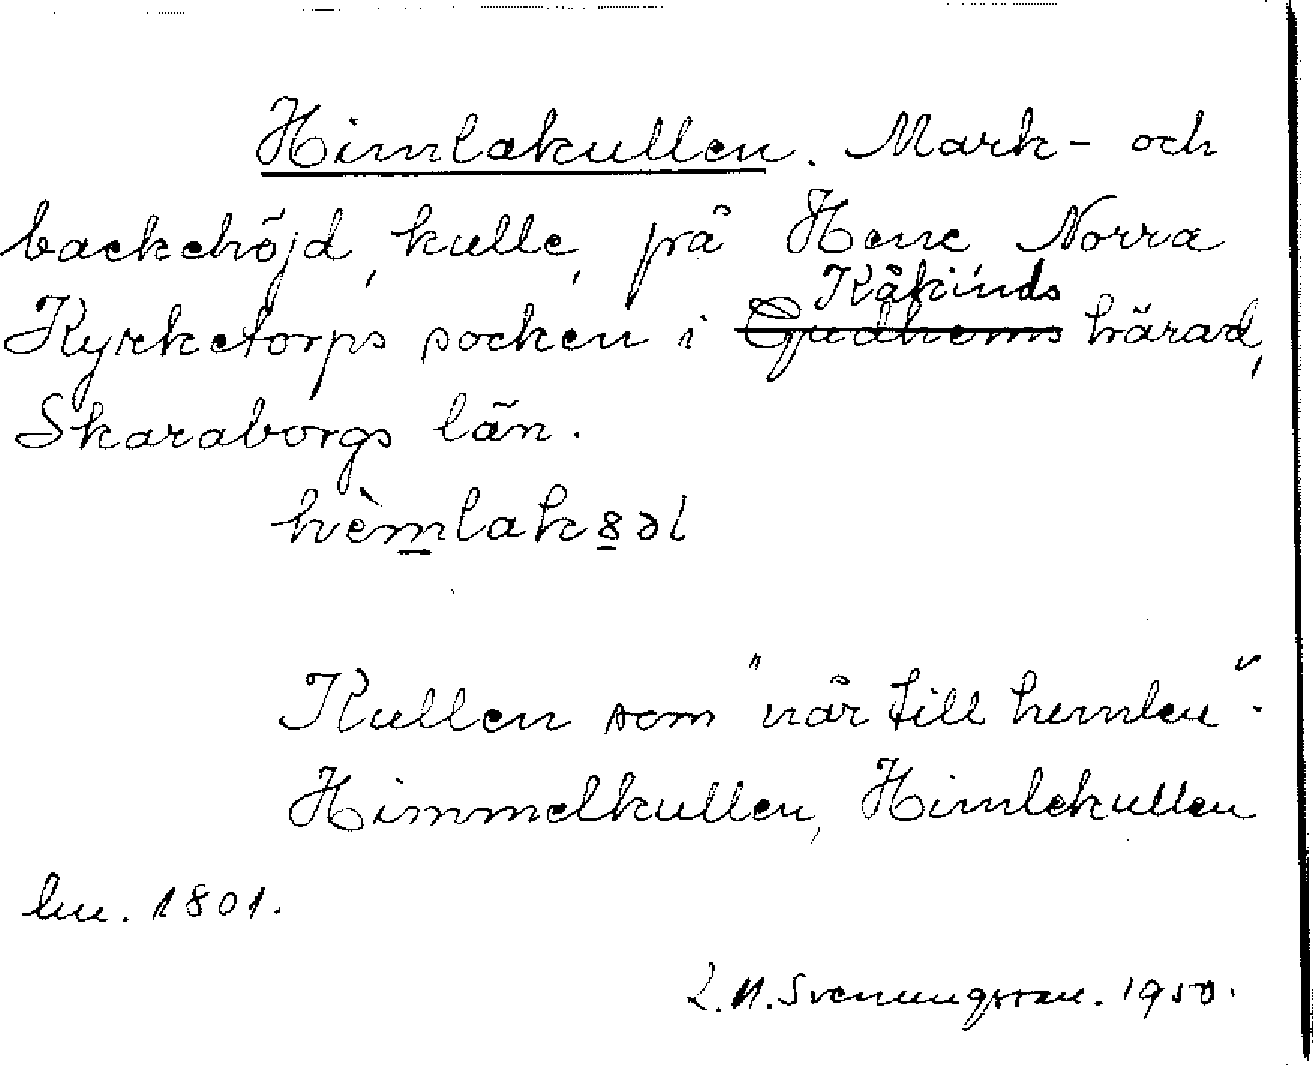 Himlakullen. Mark- och
backehöjd, kulle, på Hene Norra
Kyrketorps socken i ~~Gudhems~~ Kåkinds härad,
Skaraborgs län.
hèmlak8əl
Kullen som "når till hemlen".
Himmelkullen, Himlekullen
lm. 1801.
L.N. Svenungsson. 1950.